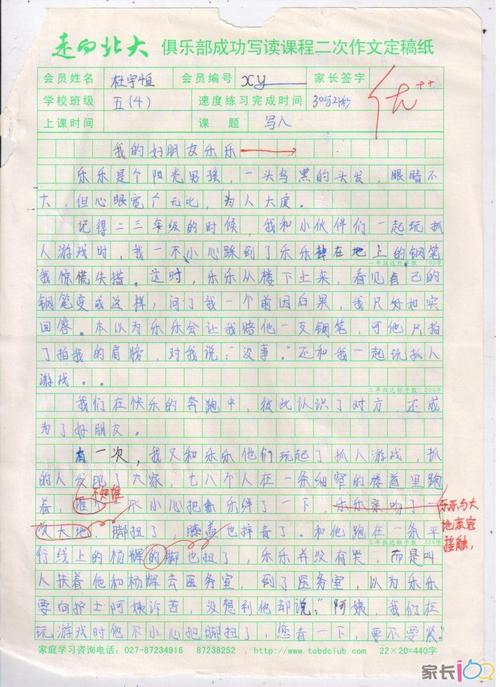 走向北大 俱乐部成功写读课程二次作文定稿纸
会员姓名 杜宇恒 会员编号 xy 家长签字
学校班级 五(4) 速度练习完成时间 30分21秒
上课时间 课题 写人
优++
我的好朋友乐乐
乐乐是个阳光男孩,一头乌黑的头发,眼睛不
大,但心眼宽广无比,为人大度。
记得二三年级的时候,我和小伙伴们一起玩抓
人游戏时,我一不小心踩到了乐乐掉在地上的钢笔
我惊慌失措。这时,乐乐从楼下上来,看见自己的
钢笔变成这样,问了我一个前因后果,我只好如实
回答。本以为乐乐会让我赔他一支钢笔,可他只拍
了拍我的肩膀,对我说:“没事。”还和我一起玩抓人
游戏。
我们在快乐的奔跑中,彼此认识了对方,还成
为了好朋友。
有一次,我又和乐乐他们玩起了抓人游戏,抓
的人发现了大家,七八个人在一条细窄的楼道里跑
着,不知谁不小心把乐乐绊了一下,乐乐亲吻了一
次大地,脚扭了,膝盖也摔青了。和他跑在一条平
乐乐与大
地亲密
接触,
行线上的杨辉的脚也扭了,乐乐并没有哭,而是叫
人扶着他和杨辉去医务室,到了医务室,以为乐乐
要向护士阿姨诉苦,没想到他却说:“阿姨,我们在
玩游戏时他不小心把脚扭了,您看一下,要不要紧。”
家庭学习咨询电话:027-87234916 87238252 http://www.tobdclub.com 22×20=440字
家长100